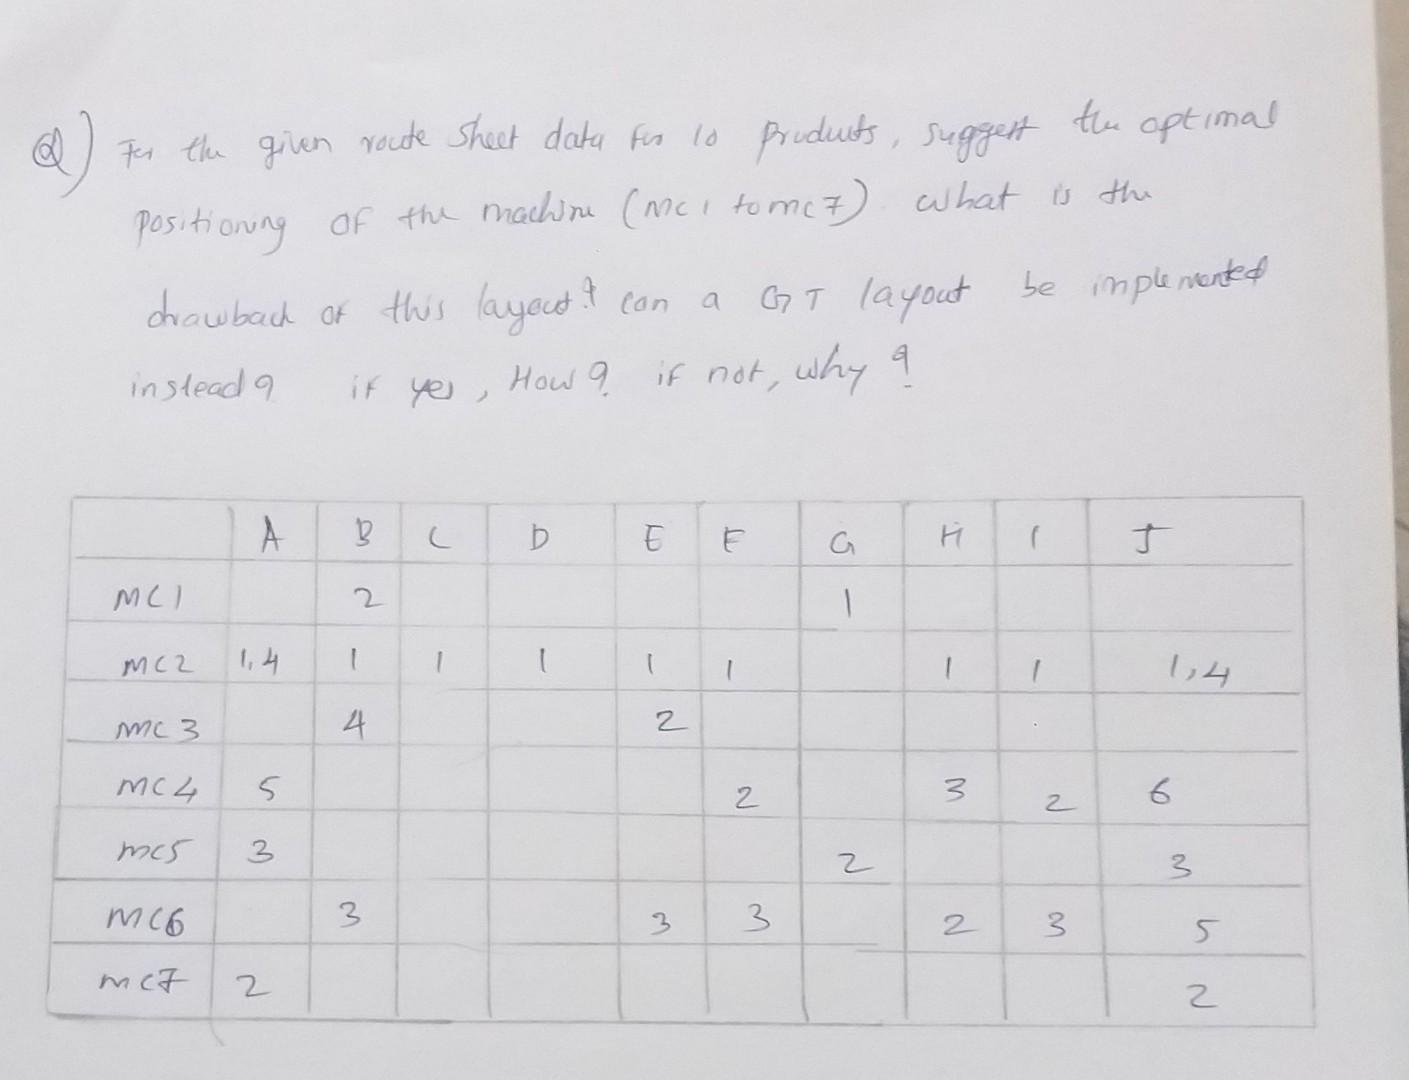 Q) For the given route sheet data for 10 products, suggest the optimal
positioning of the machine (mc1 to mc7). what is the
drawback of this layout? can a GT layout be implemented
instead? if yes, How? if not, why?
A B C D E F G H I J
MC1 2 1
MC2 1,4 1 1 1 1 1 1 1 1,4
MC3 4 2
MC4 5 2 3 2 6
MC5 3 2 3
MC6 3 3 3 2 3 5
MC7 2 2